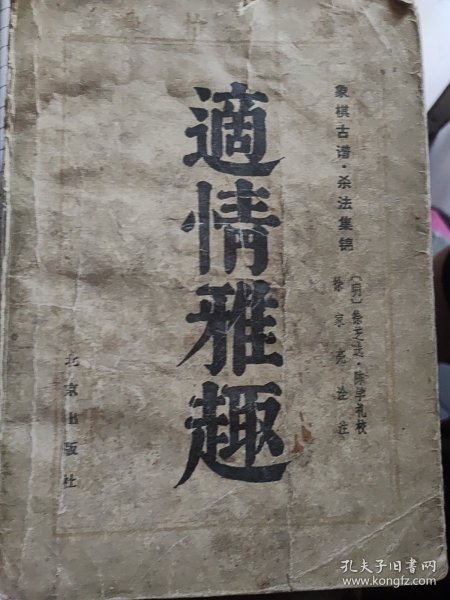 象棋古谱·杀法集锦
〔明〕徐芝选·陈学礼校
徐家亮诠注
適情雅趣
北京出版社
孔夫子旧书网
www.kongfz.com